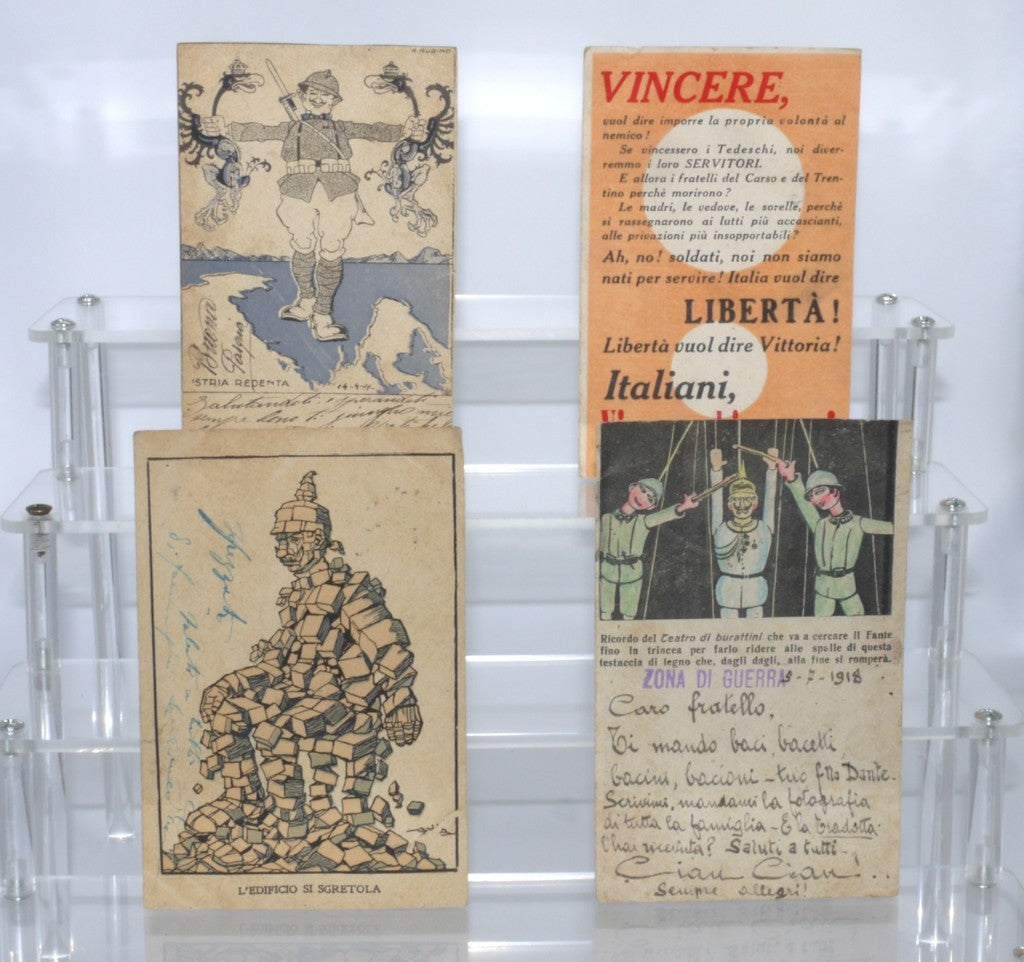 A. RUBINO
Buona
Pasqua
ISTRIA REDENTA
14-4-
Salutandoti e sperandoti
sempre
VINCERE,
vuol dire imporre la propria volontà al
nemico!
Se vincessero i Tedeschi, noi diver-
remmo i loro SERVITORI.
E allora i fratelli del Carso e del Tren-
tino perchè morirono?
Le madri, le vedove, le sorelle, perchè
si rassegnarono ai lutti più accascianti,
alle privazioni più insopportabili?
Ah, no! soldati, noi non siamo
nati per servire! Italia vuol dire
LIBERTÀ!
Libertà vuol dire Vittoria!
Italiani,
L'EDIFICIO SI SGRETOLA
Ricordo del Teatro di burattini che va a cercare il Fante
fino in trincea per farlo ridere alle spalle di questa
testaccia di legno che, dagli dagli, alla fine si romperà.
ZONA DI GUERRA 5-7-1918
Caro fratello,
Ti mando baci, bacetti,
bacini, bacioni - tuo f.llo Dante.
Scrivimi, mandami la fotografia
di tutta la famiglia - E la tradotta
l'hai ricevuta? Saluti a tutti -
Ciau Ciau ..
Sempre allegri!